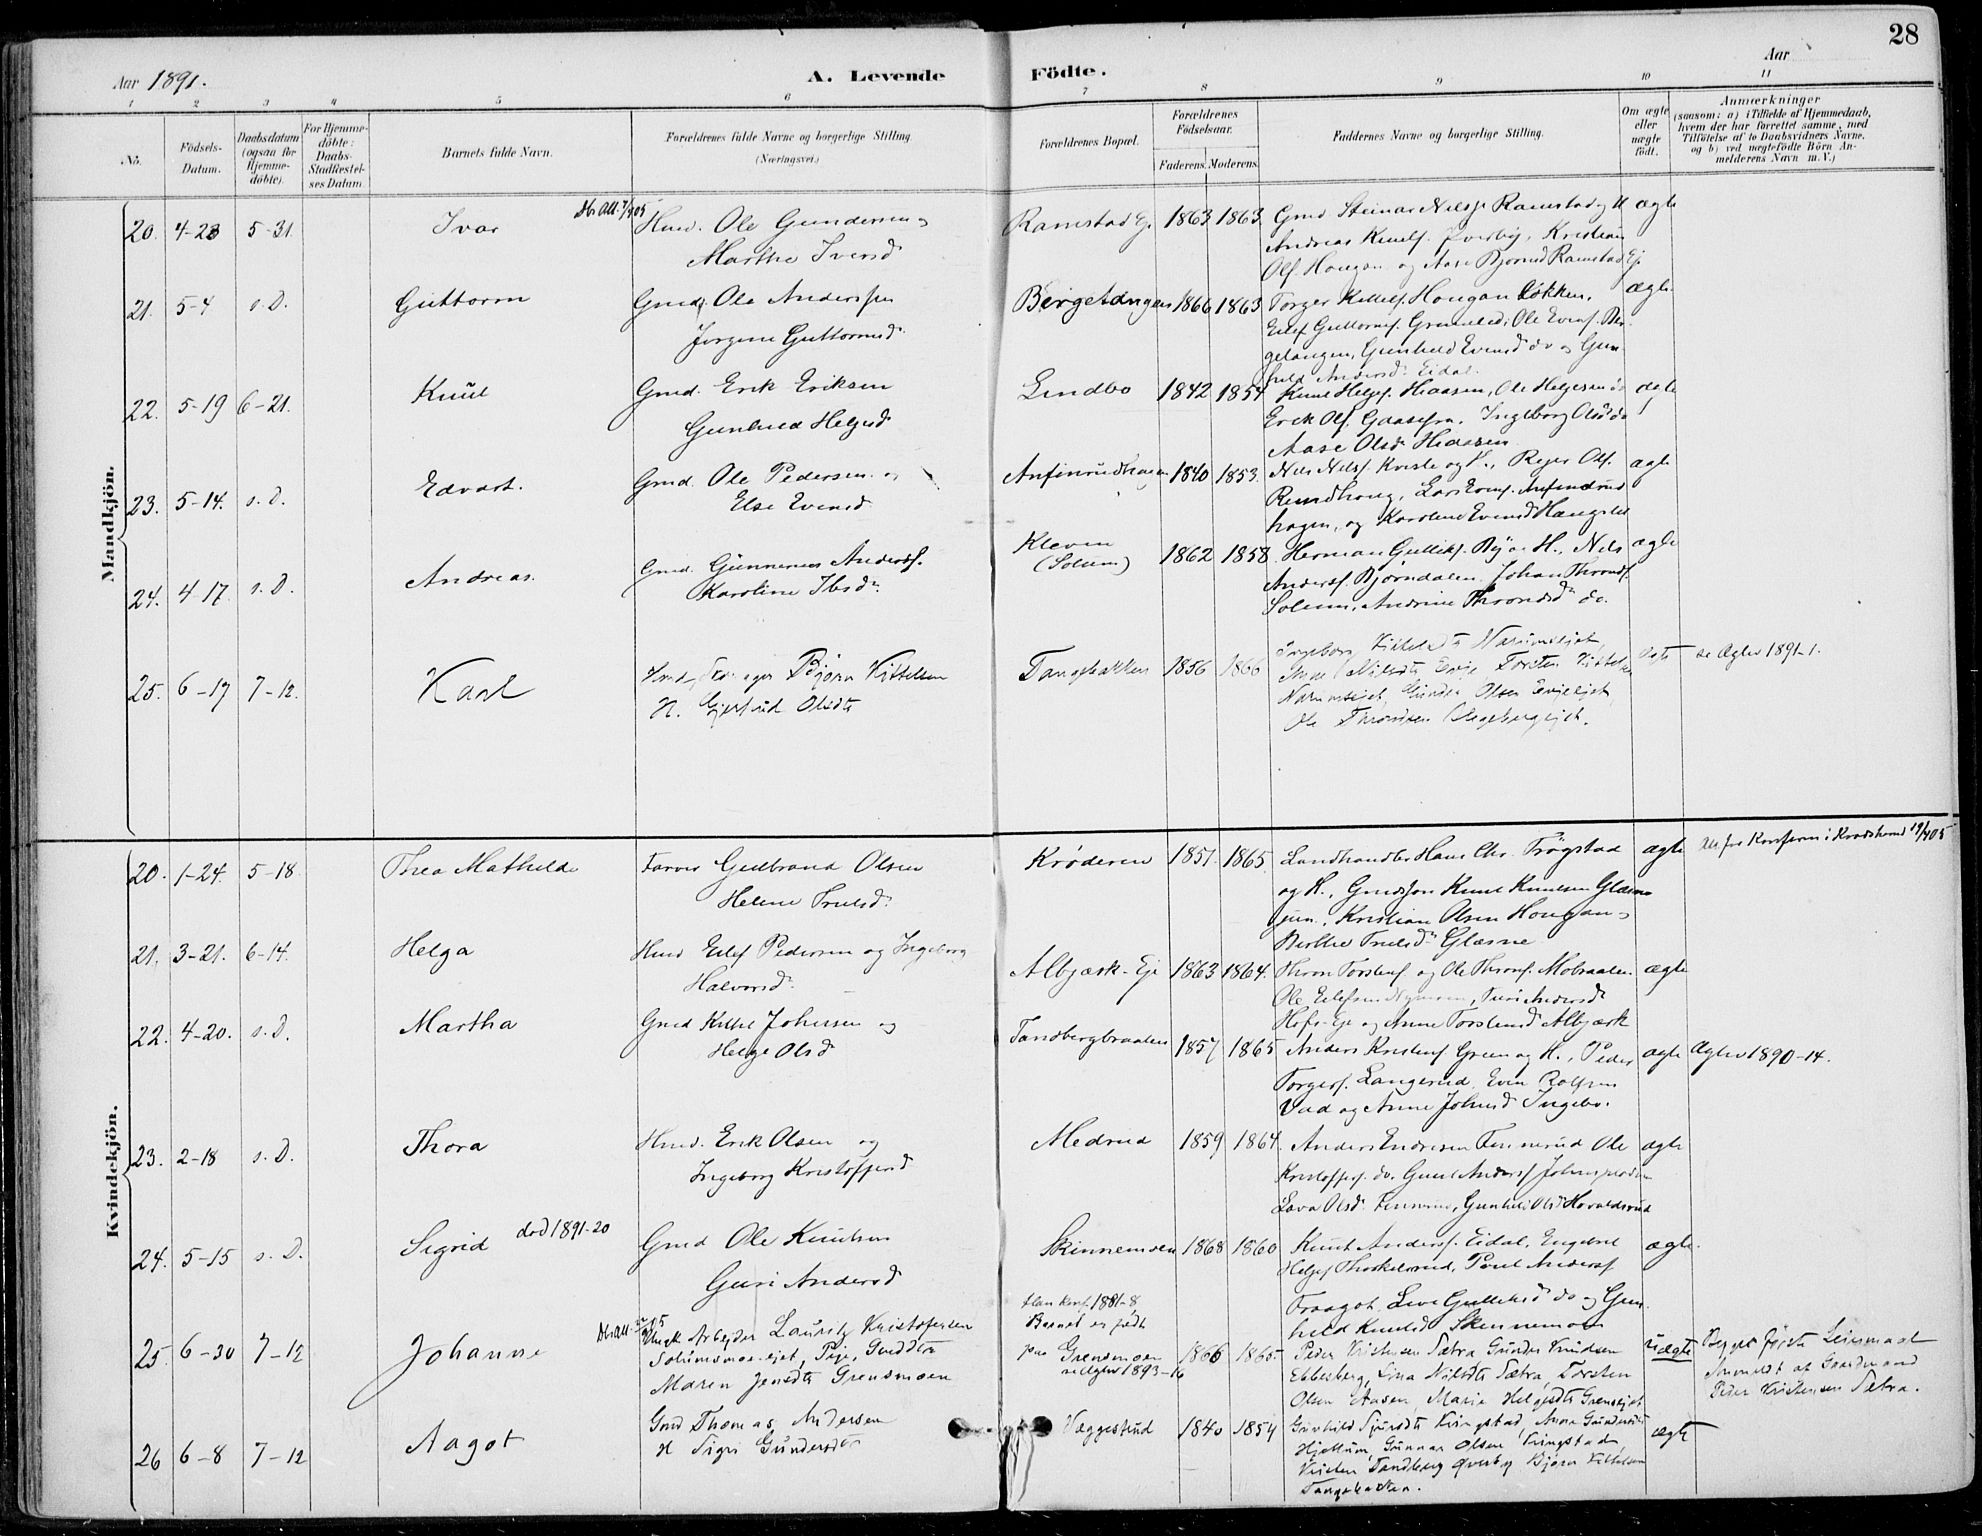 28
Aar 1891.
A. Levende Födte.
Aar
1 2 3 4 5 6 7 8 9 10 11
No.
Födsels-Datum.
Daabsdatum (ogsaa for Hjemmedöbte).
For Hjemmedöbte: Daabs-Stadfæstelses Datum.
Barnets fulde Navn.
Forældrenes fulde Navne og borgerlige Stilling.
(Næringsvei.)
Forældrenes Bopæl.
Forældrenes Födselsaar.
Faderens. Moderens.
Faddernes Navne og borgerlige Stilling.
Om ægte eller uægte födt.
Anmærkninger
(saasom: a) i Tilfælde af Hjemmedaab, hvem der har forrettet samme, med Tilföielse af to Daabsvidners Navne, og b) ved uægtefödte Börn Anmelderens Navn m. V.)
Mandkjön.
20. 4-23 5-31. Ivar
Hmd. Ole Gundersen og
Marthe Iversd
Ramstad Ej. 1863 1863
Gmd Steinar Nilsf. Ramstad og H
Andreas Knudsf. Øverby, Kristian
Olf. Hougan og Aase Bjørnsd Ramstad Ej.
ægte
21. 5-4 s.D. Guttorm
Gmd. Ole Anderssen
Jørgine Guttormsd.
Bergetangen 1866 1863
Torger Kittilsf. Hougan Løkken,
Eilef Guttormsf. Ole Evensf. Ber-
getangen, Gunhild Evensd do og Gun-
hild Andersd. Eidal.
ægte
22. 5-19 6-21. Knut
Gmd. Erik Eriksen
Gunhild Helgesd
Lindbo 1842 1854
Knut Helgesf. Hiaasen, Ole Helgesen do
Erik Olf. Ingeborg Olsd do
Aase Olsd. Hiaasen
ægte
23. 5-14. s.D. Edvart.
Gmd. Ole Pedersen og
Else Evensd
Anfinrudhagen 1840 1853.
Nils Nilsf. Kvisle og H., Reier Olf.
Lars Evensf. Anfinrud
hagen, og Karoline Evensd
ægte
24. 4-17. s.D. Andreas.
Gmd. Gunnerus Andersf.
Karoline Ibsd.
Kleven
(Solum) 1862 1858.
Herman Gulliksf. By og H., Nils
Andersf. Bjørndalen. Johan Throndsf.
Solum, Andrine Throndsd do.
ægte
25. 6-17 7-12. Karl
Bjørn Kittelsen
H. Gjertrud Olsdtr
Tangebakken 1856 1866
Ingeborg Kittelsdtr Narumseiet,
Nilsdtr Torsten Kittelsen
Narumseiet, Gunder Olsen
Ole Throndsen
ægte
se Ægtev 1891-1.
Kvindekjön.
20. 1-24. 5-18 Thea Mathilde
Farver Gudbrand Olsen
Helene Trulsd.
Krøderen 1851. 1865.
Landhandler Hans Chr. Trøgstad
og H., Knut Knutsen Glæsne
Kristian Olsen Hougan
Berthe Trulsd. Glæsne
ægte
21. 3-21. 6-14. Helga
Hmd Eilef Pedersen og Ingeborg
Halvorsd.
Albjærk-Eje 1863 1864.
Thron Torstensf. og Ole Thronsf. Mobraaten
Ole Eilefsen Turi Andersd
Hofs-Eje og Anne Torstensd Albjærk
ægte
22. 4-20. s.D. Martha
Gmd Kittel Johnsen og
Helge Olsd
Tandbergbraaten 1857 1865
Anders Kristensf. Green og H., Peder
Torgersf. Langerud, Even Rolfsen
Vad og Anne Johnsd Ingebo.
ægte
Ægtev 1890-14.
23. 2-18 s.D. Thora
Hmd. Erik Olsen og
Ingeborg Kristoffersd
Medrud 1859 1864.
Anders Endresen Finnerud Ole
Kristoffersf. do. Andersf
Olsd. Finnerud, Gunhild Olsd Haraldsrud
ægte
24. 5-15 s.D. Sigrid død 1891-20
Gmd Ole Knutsen
Guri Andersd
Skinnemoen 1868 1860
Knut Andersf. Eidal, Engebret
Helgesf Thorkelsrud, Poul Andersf
Fraagot, Live do og Gun-
hild Knutsd Skinnemoen
ægte.
25. 6-30 7-12 Johanne
Ungk Arbejder Lauritz Kristofersen
Maren Jensdtr Grensmoen
Han Konf. 1881-8
Barnet er født
paa Grensmoen 1866 1865.
Peder Kristensen Sætra Gunder Knudsen
Ebbesberg, Lina Nilsdtr Sætra, Torsten
Olsen Aasen, Marie Helgesdtr
uægte
Begges første Leiermaal
Anmeldt af Gaardmand
Peder Kristensen Sætra.
26 6-8 7-12 Aagot
Gmd Thomas Andersen
H Sigri Gundersdtr
Væggesrud 1840 1854
Gunhild Ringstad, Anna Gundersdtr
Hjellum, Gunnar Olsen Ringstad,
Kristen Tandberg Øverby Bjørn Kittelsen
Tangebakken.
ægte